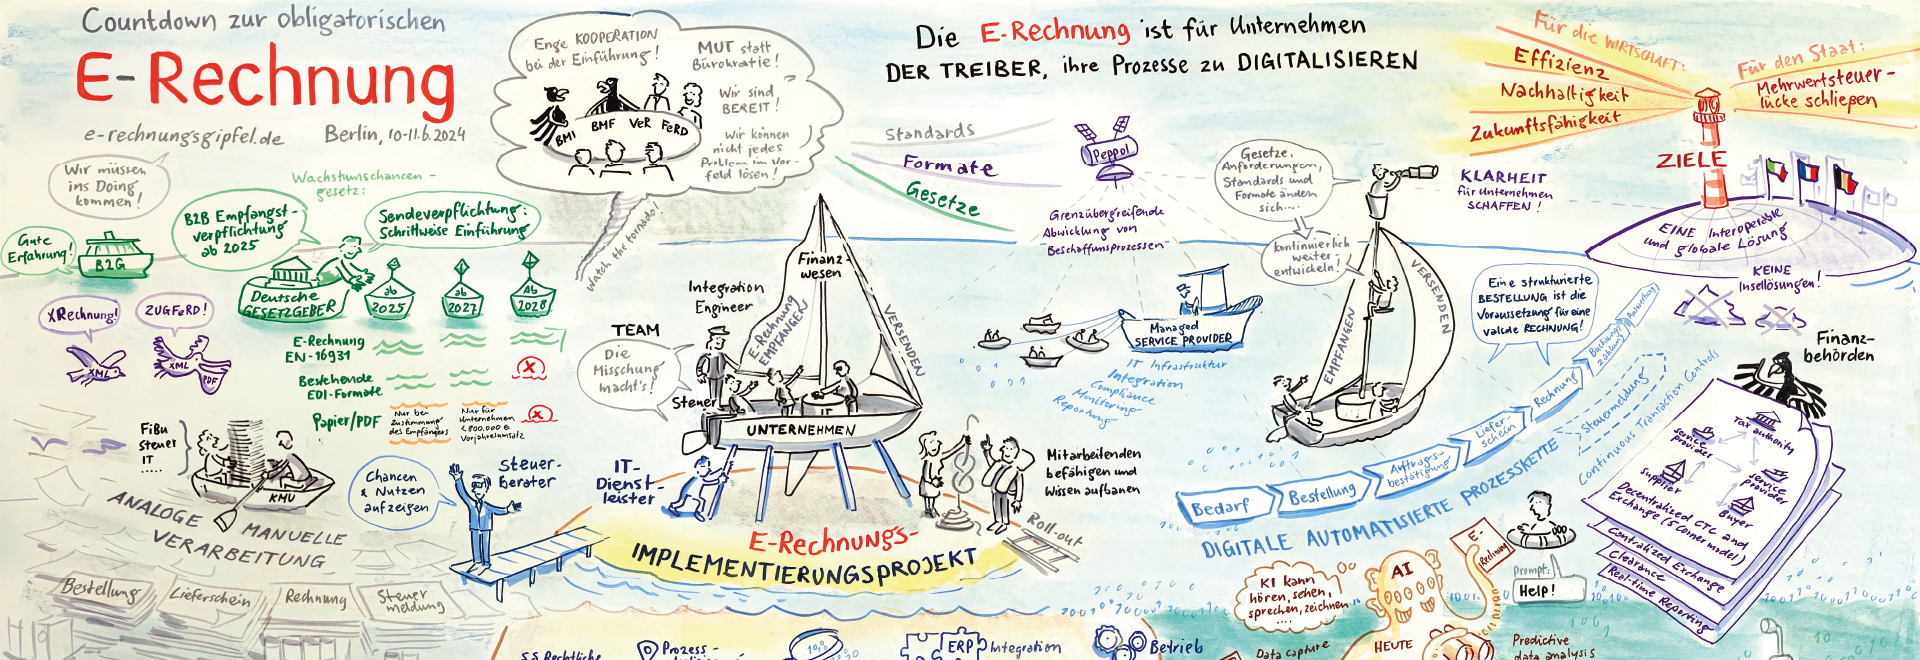 Countdown zur obligatorischen
E-Rechnung
e-rechnungsgipfel.de Berlin, 10-11.6.2024
Wir müssen
ins Doing
kommen!
Gute
Erfahrung!
B2G
Wachstumschancen-
gesetz:
B2B Empfangst-
verpflichtung
ab 2025
Sendeverpflichtung:
Schrittweise Einführung
Deutsche
GESETZGEBER
ab
2025
ab
2027
Ab
2028
XRechnung!
ZUGFeRD!
XML
XML
PDF
E-Rechnung
EN-16931
Bestehende
EDI-Formate
Papier/PDF
Nur bei
Zustimmung
des Empfängers
Nur für
Unternehmen
<800.000 €
Vorjahresumsatz
FiBu
Steuer
IT
.....
KMU
ANALOGE MANUELLE
VERARBEITUNG
Bestellung
Lieferschein
Rechnung
Steuer
meldung
Chancen
& Nutzen
aufzeigen
Steuer-
berater
Enge KOOPERATION
bei der Einführung!
MUT statt
Bürokratie!
Wir sind
BEREIT!
Wir können
nicht jedes
Problem im Vor-
feld lösen!
BMI
BMF
VeR
FeRD
Watch the tornado!
Die E-Rechnung ist für Unternehmen
DER TREIBER, ihre Prozesse zu DIGITALISIEREN
Standards
Formate
Gesetze
Peppol
Grenzübergreifende
Abwicklung von
Beschaffunsprozessen
Finanz-
wesen
E-Rechnung
EMPFANGEN
VERSENDEN
Integration
Engineer
TEAM
Die
Misschung
macht's!
Steuer
IT
UNTERNEHMEN
IT-
Dienst-
leister
E-Rechnungs-
IMPLEMENTIERUNGSPROJEKT
Mitarbeitenden
befähigen und
Wissen aufbauen
Roll-out
Managed
SERVICE PROVIDER
IT Infrastruktur
Integration
Compliance
Monitoring
Reporting
Gesetze,
Anforderungen,
Standards und
Formate ändern
sich....
kontinuierlich
weiter-
entwickeln!
EMPFANGEN
VERSENDEN
KLARHEIT
für Unternehmen
SCHAFFEN!
Für die WIRTSCHAFT:
Effizienz
Nachhaltigkeit
Zukunftsfähigkeit
Für den Staat:
Mehrwertsteuer-
lücke schließen
ZIELE
EINE Interoperable
und globale Lösung
KEINE
Insellösungen!
Eine strukturierte
BESTELLUNG ist die
Voraussetzung für eine
valide RECHNUNG!
Bedarf
Bestellung
Auftrags-
bestätigung
Liefer
schein
Rechnung
Buchung/
Zahlung
Auswertung
Steuermeldung
Continuous Transaction Controls
DIGITALE AUTOMATISIERTE PROZESSKETTE
Finanz-
behörden
Tax authority
service
provider
service
provider
Supplier
Buyer
Decentralized CTC and
Exchange (5 corner model)
Centralized Exchange
Clearance
Real-time Reporting
KI kann
hören, sehen,
sprechen, zeichnen
....
AI
HEUTE
E-
Rechnung
Prompt:
Help!
Data capture
Predictive
data analysis
§§ Rechtliche
Prozess-
ERP
Integration
Betrieb